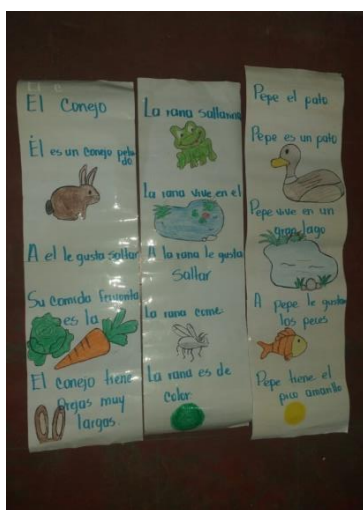 El Conejo
Él es un conejo
A el le gusta saltar
Su comida
es la
El conejo tiene
Orejas muy
largas.
La rana
La rana vive en el
A la rana le gusta
Saltar
La rana come
La rana es de
color
Pepe el pato
Pepe es un pato
Pepe vive en un
gran lago
A pepe le gustan
los peces
Pepe tiene el
pico amarillo